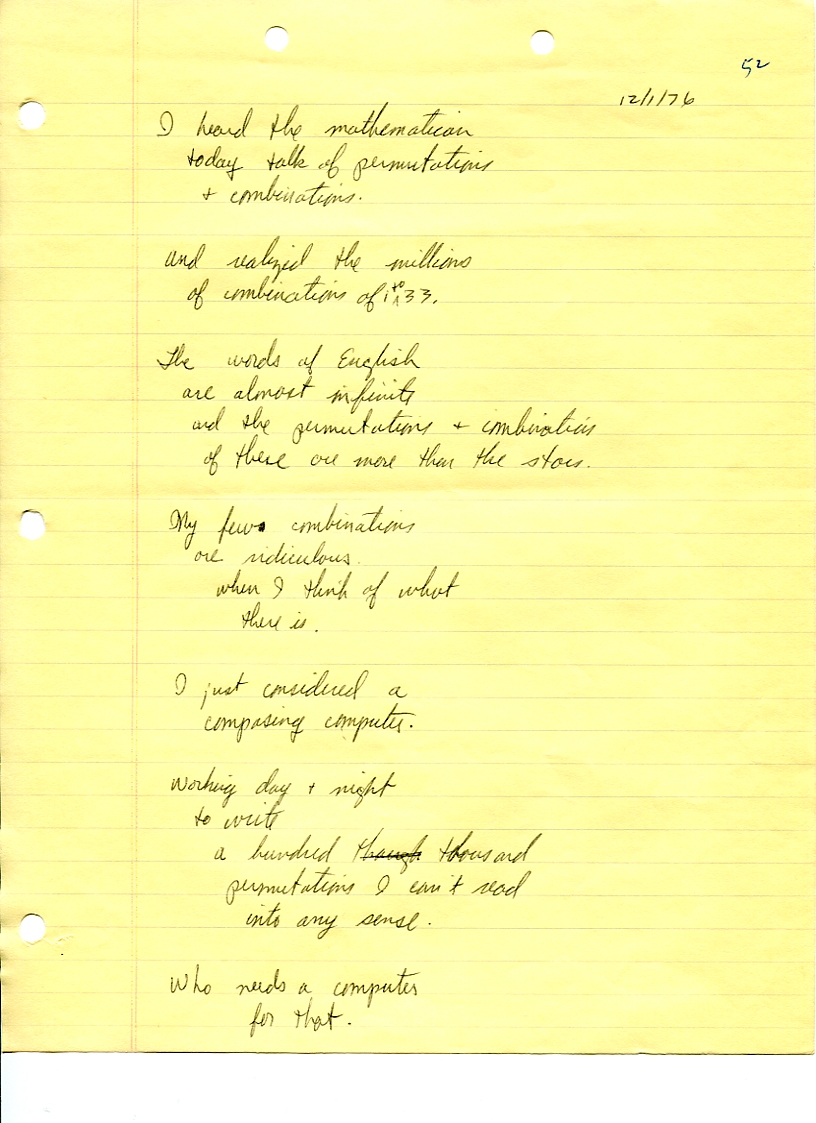 52
12/1/76
I heard the mathematician
today talk of permutations
+ combinations.
and realized the millions
of combinations of 1 to 33.
The words of English
are almost infinite
and the permutations + combinations
of these are more than the stars.
My few combinations
are ridiculous
when I think of what
there is.
I just considered a
composing computer.
Working day + night
to write
a hundred though thousand
permutations I can't read
into any sense.
Who needs a computer
for that.